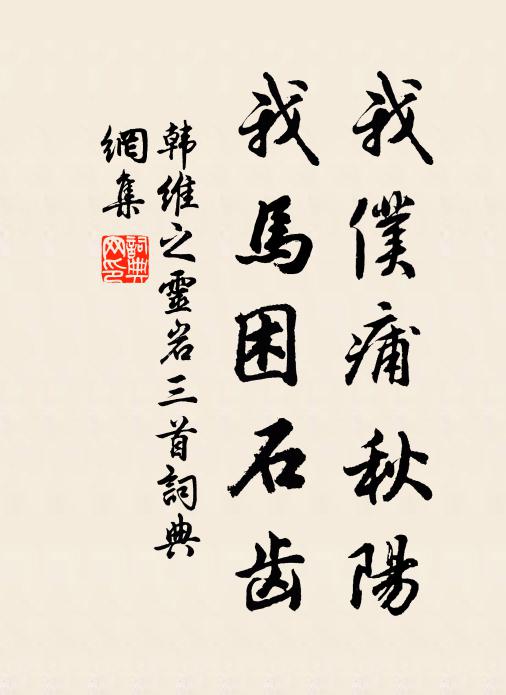 我僕痡秋陽
我馬困石齿
韩維之靈岩三首詞典
網集
詞典
网印